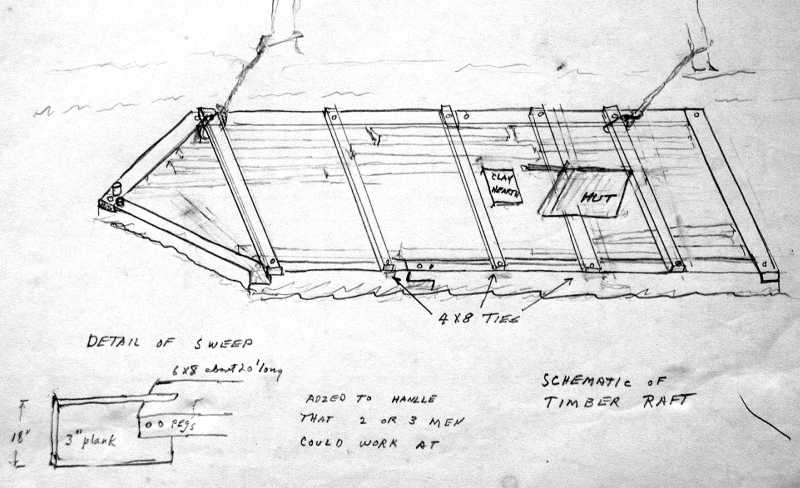 CLAY
HEARTH
HUT
4 X 8 TIES
DETAIL OF SWEEP
6 X 8 about 20' long
18"
3" plank
PEGS
ADZED TO HANDLE
THAT 2 OR 3 MEN
COULD WORK AT
SCHEMATIC OF
TIMBER RAFT